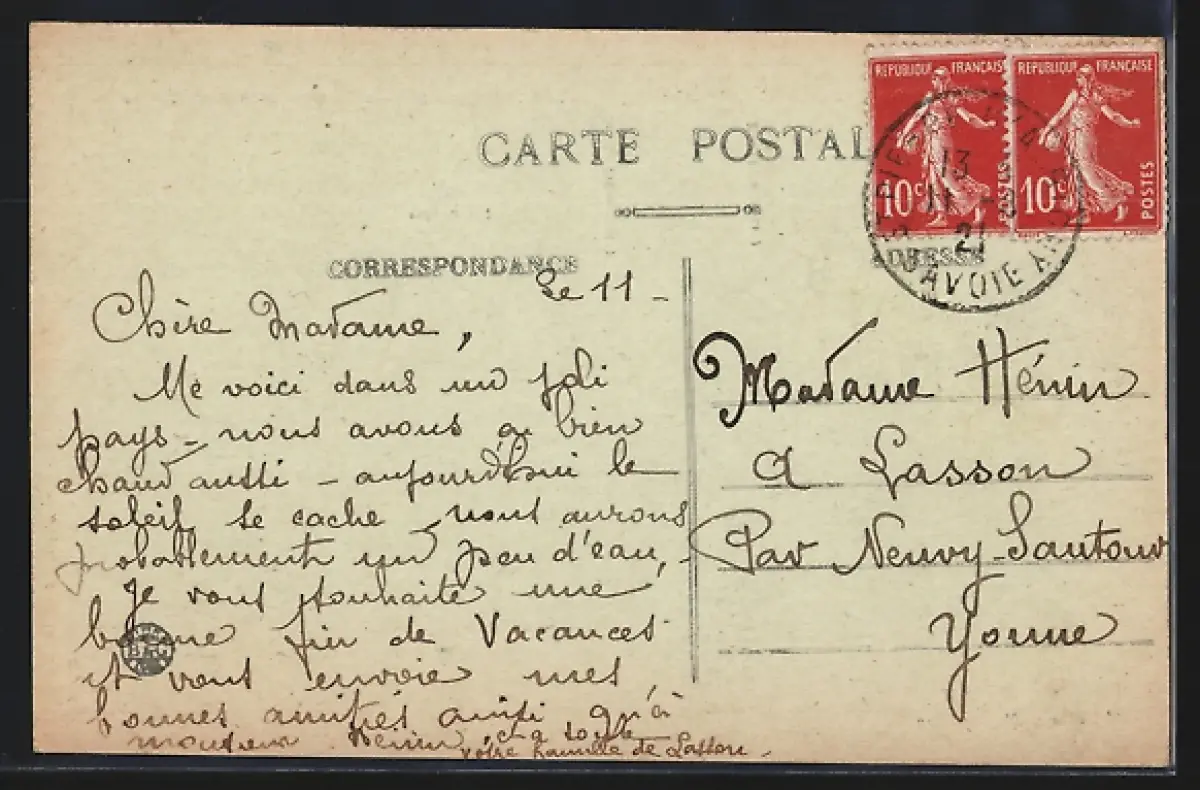 CARTE POSTAL
REPUBLIQUE FRANÇAISE
10c
POSTES
REPUBLIQUE FRANÇAISE
10c
POSTES
13
21
SAVOIE
CORRESPONDANCE
ADRESSE
Le 11 -
Chère Madame,
Me voici dans un joli
pays - nous avons eu bien
chaud aussi - aujourd'hui le
soleil se cache nous aurons
probablement un peu d'eau, -
Je vous souhaite une
bonne fin de Vacances
et vous envoie mes
bonnes amitiés ainsi qu'à
monsieur Hénin, et à toute
votre famille de Lasson.
Madame Hénin
à Lasson
Par Neuvy-Sautour
Yonne